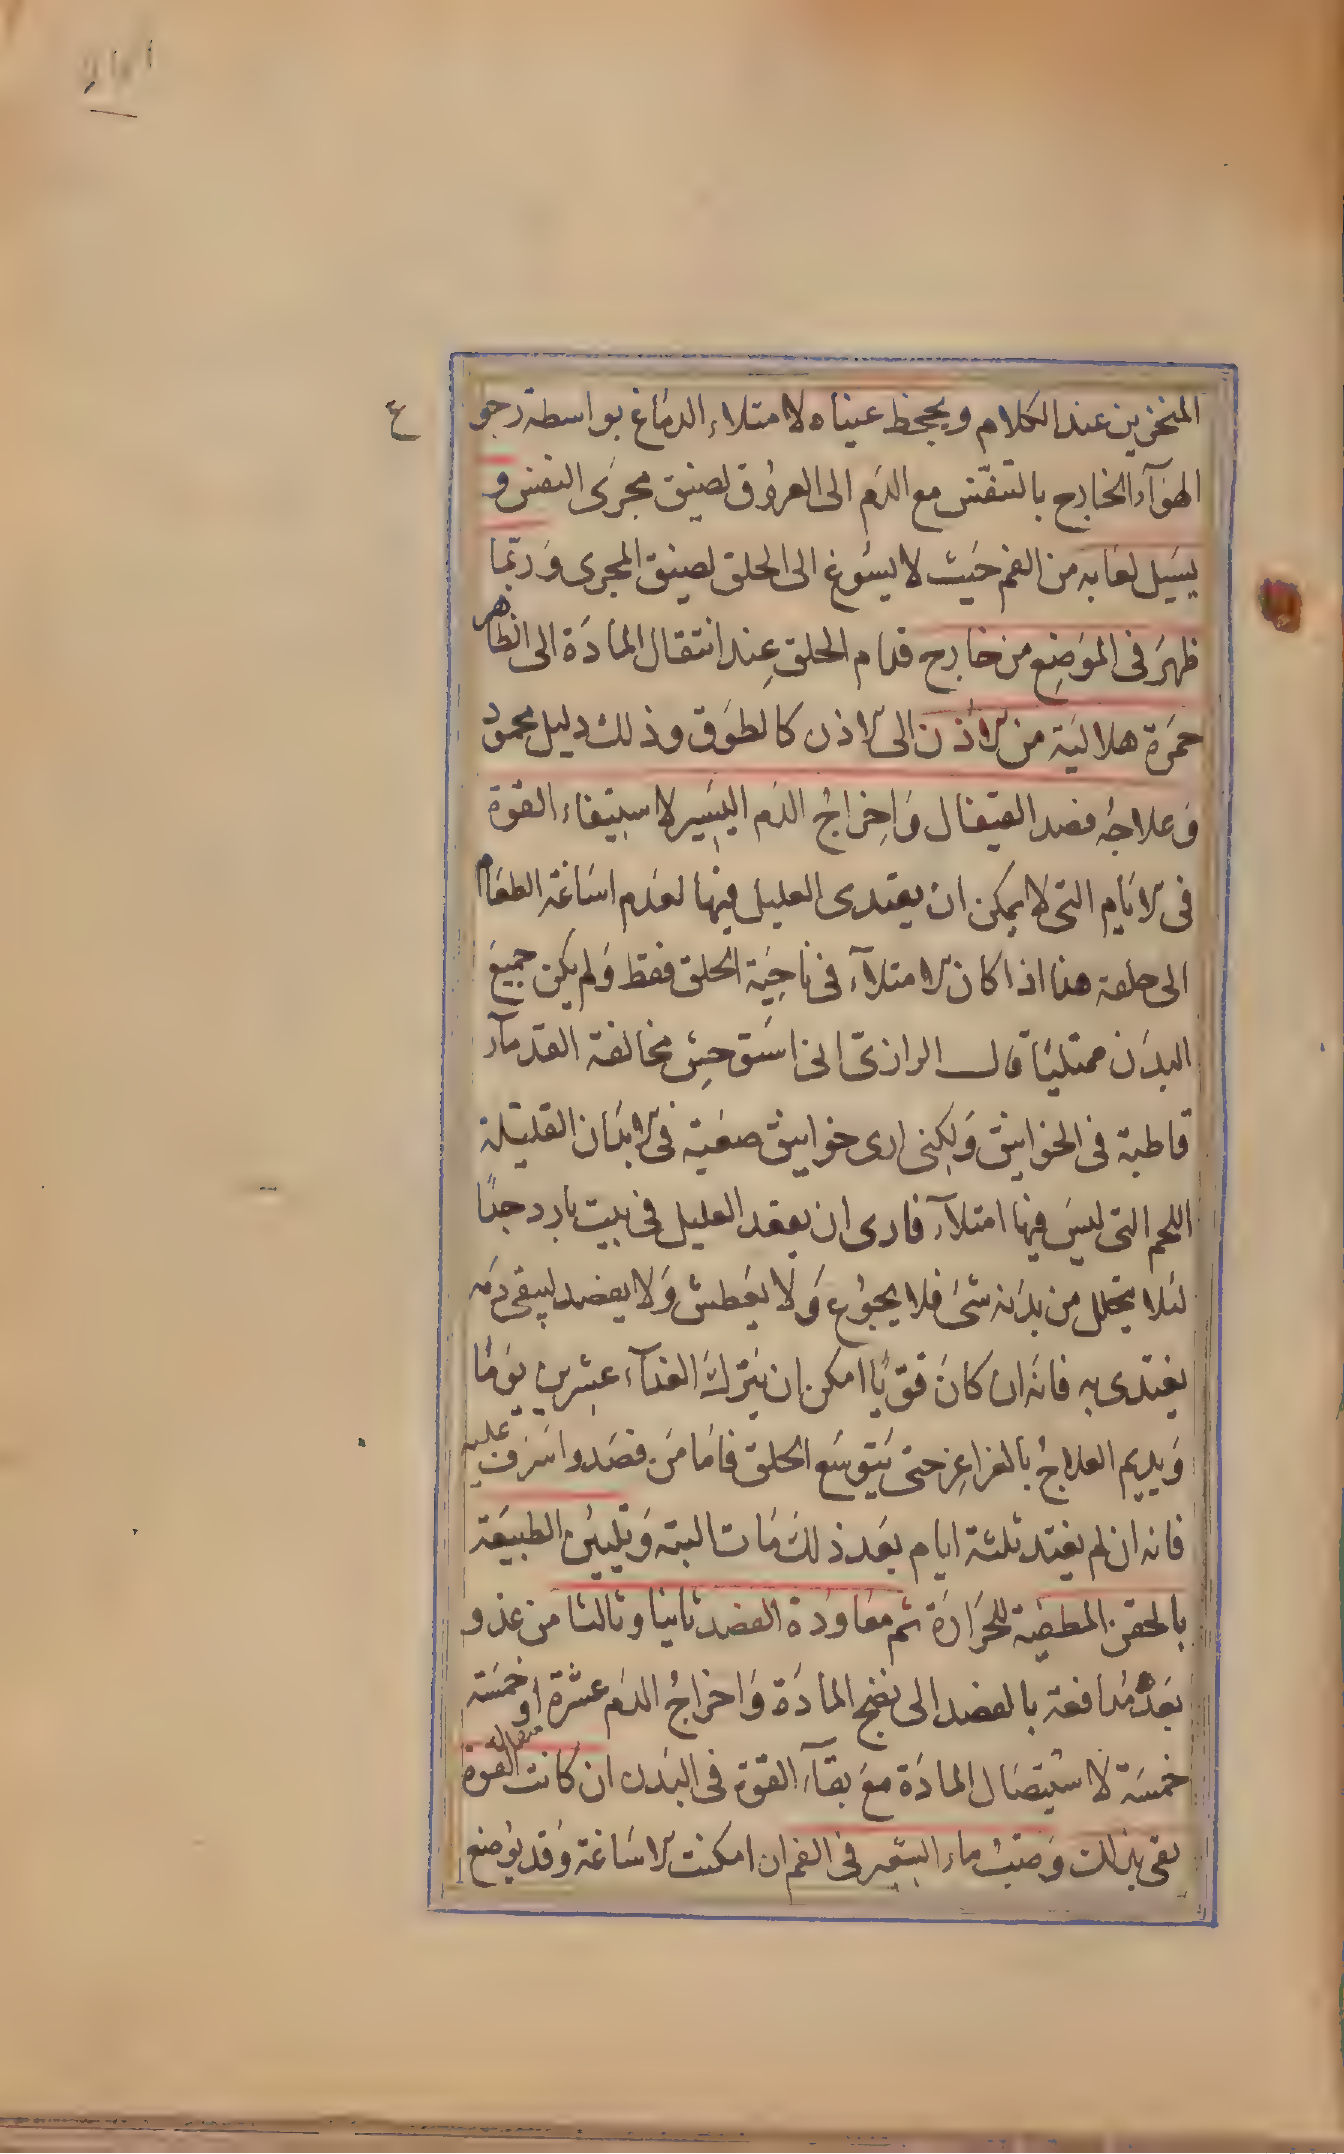 المنخرين عند الكلام ويجحظ عيناه لامتلاء الدماغ بواسطة رجو
ع
الهوآء الخارج بالتنفّس مع الدم الى العروق لضيق مجرى النفس و
يسيل لعابه من الفم حيث لا يسوغ الى الحلق لضيق المجرى وربّما
ظهر فى الموضع من خارج قدام الحلق عند انتقال المادة الى الظاهر
حمرة هلالية من الاذن الى الاذن كالطوق وذلك دليل محمود
وعلاجه فصد القيفال واخراج الدم اليسير لاستيفاء القوة
فى الايام التى لا يمكن ان يغتدى العليل فيها لعدم اساغة الطعام
الى حلقه هذا اذا كان الامتلآء فى ناحية الحلق فقط ولم يكن جميع
البدن ممتليا قال الرازى انى استوحش مخالفة القدمآء
قاطبة فى الخوانيق ولكنى ارى خوانيق صعبة فى الابدان القليلة
اللحم التى ليس فيها امتلآء فارى ان يقعد العليل فى بيت بارد جدًا
لئلا يتحلل من بدنه شئ فلا يجوع ولا يعطش ولا يفصد ليبقى دمه
يغتدى به فانه ان كان قويًا امكن ان يترك الغذآء عشرين يوما
ويديم العلاج بالغراغر حتى يتوسع الحلق فاما من فصد واسرف عليه
فانه ان لم يغتد ثلثة ايام بعد ذلك مات البتة وتليين الطبيعة
بالحقن المطفية للحرارة ثم معاودة الفصد ثانيا وثالثا من غد و
بعده مدافعة بالفصد الى نضج المادة واخراج الدم عشرة او خمسة
خمسة لاستيصال المادة مع بقآء القوة فى البدن ان كانت القوة
يفى بذلك وصب ماء الشعير فى الفم ان امكنت الاساغة وقد يوضع